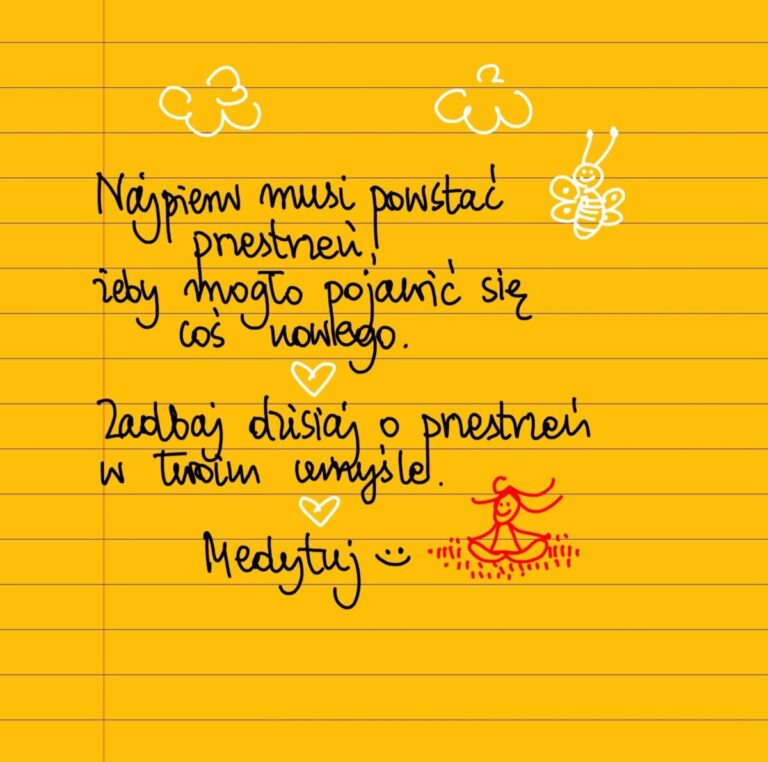 Najpierw musi powstać
przestrzeń,
żeby mogło pojawić się
coś nowego.
Zadbaj dzisiaj o przestrzeń
w twoim umyśle.
Medytuj :)